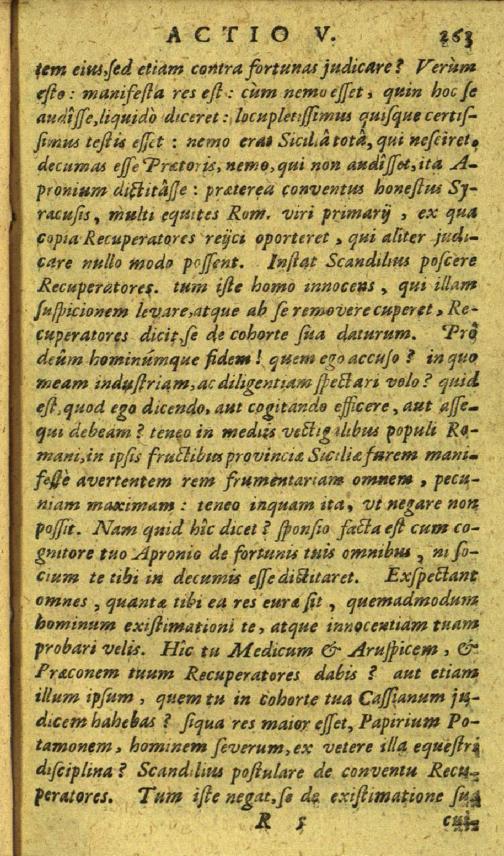 ACTIO V. 263
tem eius, sed etiam contra fortunas judicare? Verùm
esto: manifesta res est: cùm nemo esset, quin hoc se
audîsse, liquidò diceret: locupletissimus quisque certis-
simus testis esset: nemo erat Siciliâ totâ, qui nesciret,
decumas esse Prætoris, nemo, qui non audîsset, ita A-
pronium dictitâsse: præterea conventus honestus Sy-
racusis, multi equites Rom. viri primarij, ex qua
copia Recuperatores reijci oporteret, qui aliter judi-
care nullo modo possent. Instat Scandilius poscere
Recuperatores. tum iste homo innocens, qui illam
suspicionem levare, atque ab se removere cuperet, Re-
cuperatores dicit, se de cohorte sua daturum. Prô
deûm hominúmque fidem! quem ego accuso? in quo
meam industriam, ac diligentiam spectari volo? quid
est, quod ego dicendo, aut cogitando efficere, aut asse-
qui debeam? teneo in mediis vectigalibus populi Ro-
mani, in ipsis fructibus provinciæ Siciliæ furem mani-
festè avertentem rem frumentariam omnem, pecu-
niam maximam: teneo inquam ita, vt negare non
possit. Nam quid hîc dicet? sponsio facta est cum co-
gnitore tuo Apronio de fortunis tuis omnibus, ni so-
cium te tibi in decumis esse dictitaret. Exspectant
omnes, quantæ tibi ea res euræ sit, quemadmodum
hominum existimationi te, atque innocentiam tuam
probari velis. Hîc tu Medicum & Aruspicem, &
Præconem tuum Recuperatores dabis? aut etiam
illum ipsum, quem tu in cohorte tua Cassianum ju-
dicem hahebas? siqua res maior esset, Papirium Po-
tamonem, hominem severum, ex vetere illa equestri
disciplina? Scandilius postulare de conventu Recu-
peratores. Tum iste negat, se de existimatione sua
R 5 cui-